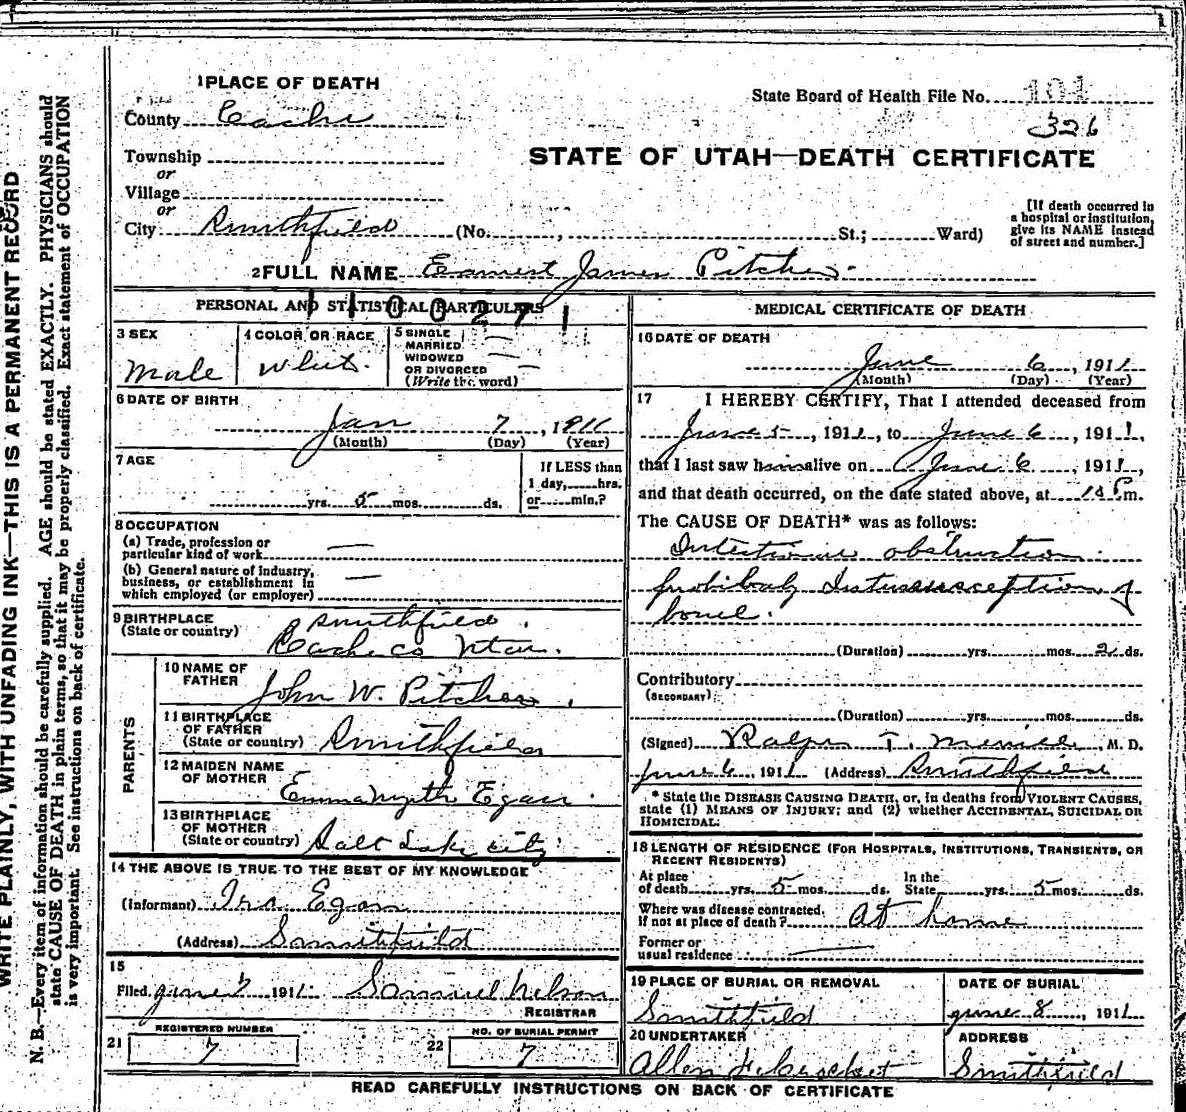 1 PLACE OF DEATH
County Cache
Township
or
Village
or
City Smithfield (No. , St.; Ward)
State Board of Health File No. 101
326
STATE OF UTAH—DEATH CERTIFICATE
[If death occurred in
a hospital or institution,
give its NAME instead
of street and number.]
2 FULL NAME Earnest James Pitcher
PERSONAL AND STATISTICAL PARTICULARS
1100271
3 SEX
Male
4 COLOR OR RACE
White
5 SINGLE
MARRIED
WIDOWED
OR DIVORCED
(Write the word)
6 DATE OF BIRTH
Jan 7, 1911
(Month) (Day) (Year)
7 AGE
yrs. 5 mos. ds.
If LESS than
1 day, hrs.
or min.?
8 OCCUPATION
(a) Trade, profession or
particular kind of work
(b) General nature of industry,
business, or establishment in
which employed (or employer)
9 BIRTHPLACE
(State or country)
Smithfield.
Cache co Utah.
PARENTS
10 NAME OF
FATHER
John W. Pitcher.
11 BIRTHPLACE
OF FATHER
(State or country) Smithfield
12 MAIDEN NAME
OF MOTHER
Emma Egan.
13 BIRTHPLACE
OF MOTHER
(State or country) Salt Lake city
14 THE ABOVE IS TRUE TO THE BEST OF MY KNOWLEDGE
(Informant) Ira Egan
(Address) Smithfield
15
Filed June 1911 Samuel Nelson
REGISTRAR
REGISTERED NUMBER
21 7
NO. OF BURIAL PERMIT
22 7
MEDICAL CERTIFICATE OF DEATH
16 DATE OF DEATH
June 6, 1911
(Month) (Day) (Year)
17 I HEREBY CERTIFY, That I attended deceased from
June 5, 1911, to June 6, 1911,
that I last saw him alive on June 6, 1911,
and that death occurred, on the date stated above, at P m.
The CAUSE OF DEATH* was as follows:
obstruction
probibaly Intussusception of
bowel.
(Duration) yrs. mos. 2 ds.
Contributory
(SECONDARY)
(Duration) yrs. mos. ds.
(Signed) Ralph T. Merrill, M. D.
June 6, 1911 (Address) Smithfield
* State the DISEASE CAUSING DEATH, or, in deaths from VIOLENT CAUSES,
state (1) MEANS OF INJURY; and (2) whether ACCIDENTAL, SUICIDAL OR
HOMICIDAL.
18 LENGTH OF RESIDENCE (FOR HOSPITALS, INSTITUTIONS, TRANSIENTS, OR
RECENT RESIDENTS)
At place
of death yrs. 5 mos. ds.
In the
State yrs. 5 mos. ds.
Where was disease contracted,
If not at place of death? At home
Former or
usual residence
19 PLACE OF BURIAL OR REMOVAL
Smithfield
DATE OF BURIAL
June 8, 1911
20 UNDERTAKER
Allen
ADDRESS
Smithfield
READ CAREFULLY INSTRUCTIONS ON BACK OF CERTIFICATE
WRITE PLAINLY, WITH UNFADING INK—THIS IS A PERMANENT RECORD
N. B.—Every item of information should be carefully supplied. AGE should be stated EXACTLY. PHYSICIANS should
state CAUSE OF DEATH in plain terms, so that it may be properly classified. Exact statement of OCCUPATION
is very important. See instructions on back of certificate.